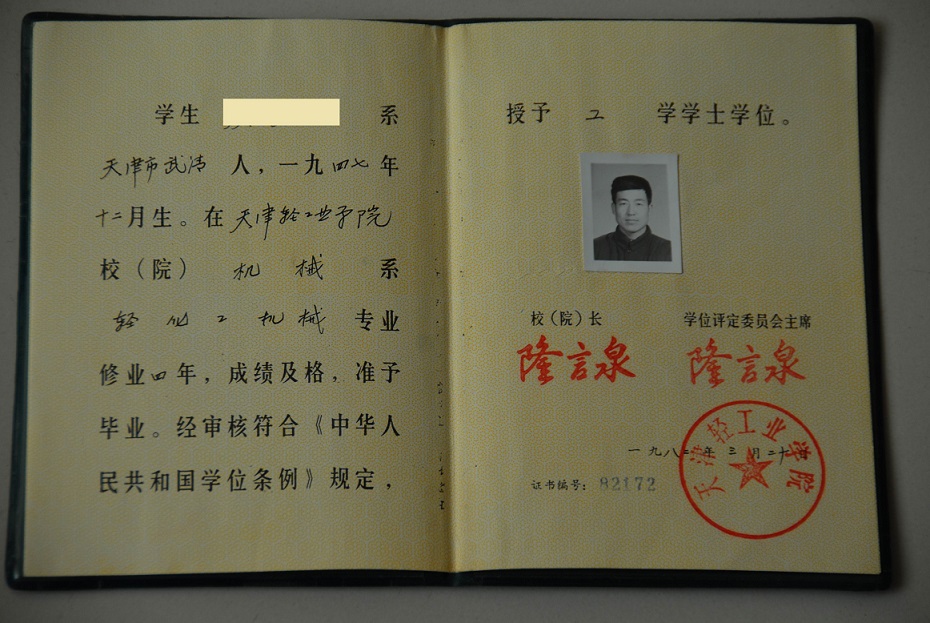 学生 系
天津市武清 人，一九四七年
十二月生。在天津轻工业学院
校（院） 机械 系
轻化工机械 专业
修业四年，成绩及格，准予
毕业。经审核符合《中华人
民共和国学位条例》规定，
授予 工 学学士学位。
校（院）长 学位评定委员会主席
隆言泉 隆言泉
一九八二年三月二十日
证书编号：82172
天津轻工业学院